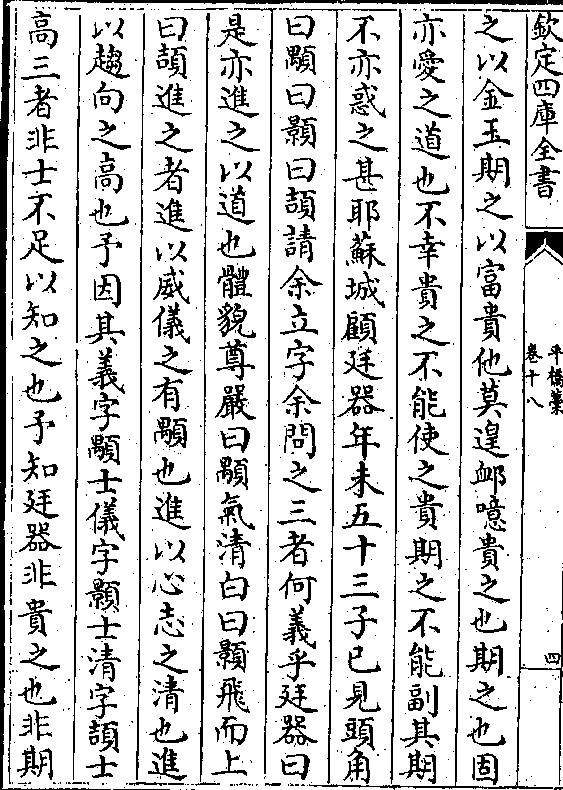 欽定四庫全書
平橋藁
卷十八
四
之以金玉期之以富貴他莫遑卹噫貴之也期之也固
亦愛之道也不幸貴之不能使之貴期之不能副其期
不亦惑之甚耶蘇城顧廷器年未五十三子已見頭角
曰顒曰顥曰頡請余立字余問之三者何義乎廷器曰
是亦進之以道也體貌尊嚴曰顒氣清白曰顥飛而上
曰頡進之者進以威儀之有顒也進以心志之清也進
以趨向之高也予因其義字顒士儀字顥士清字頡士
高三者非士不足以知之也予知廷器非貴之也非期